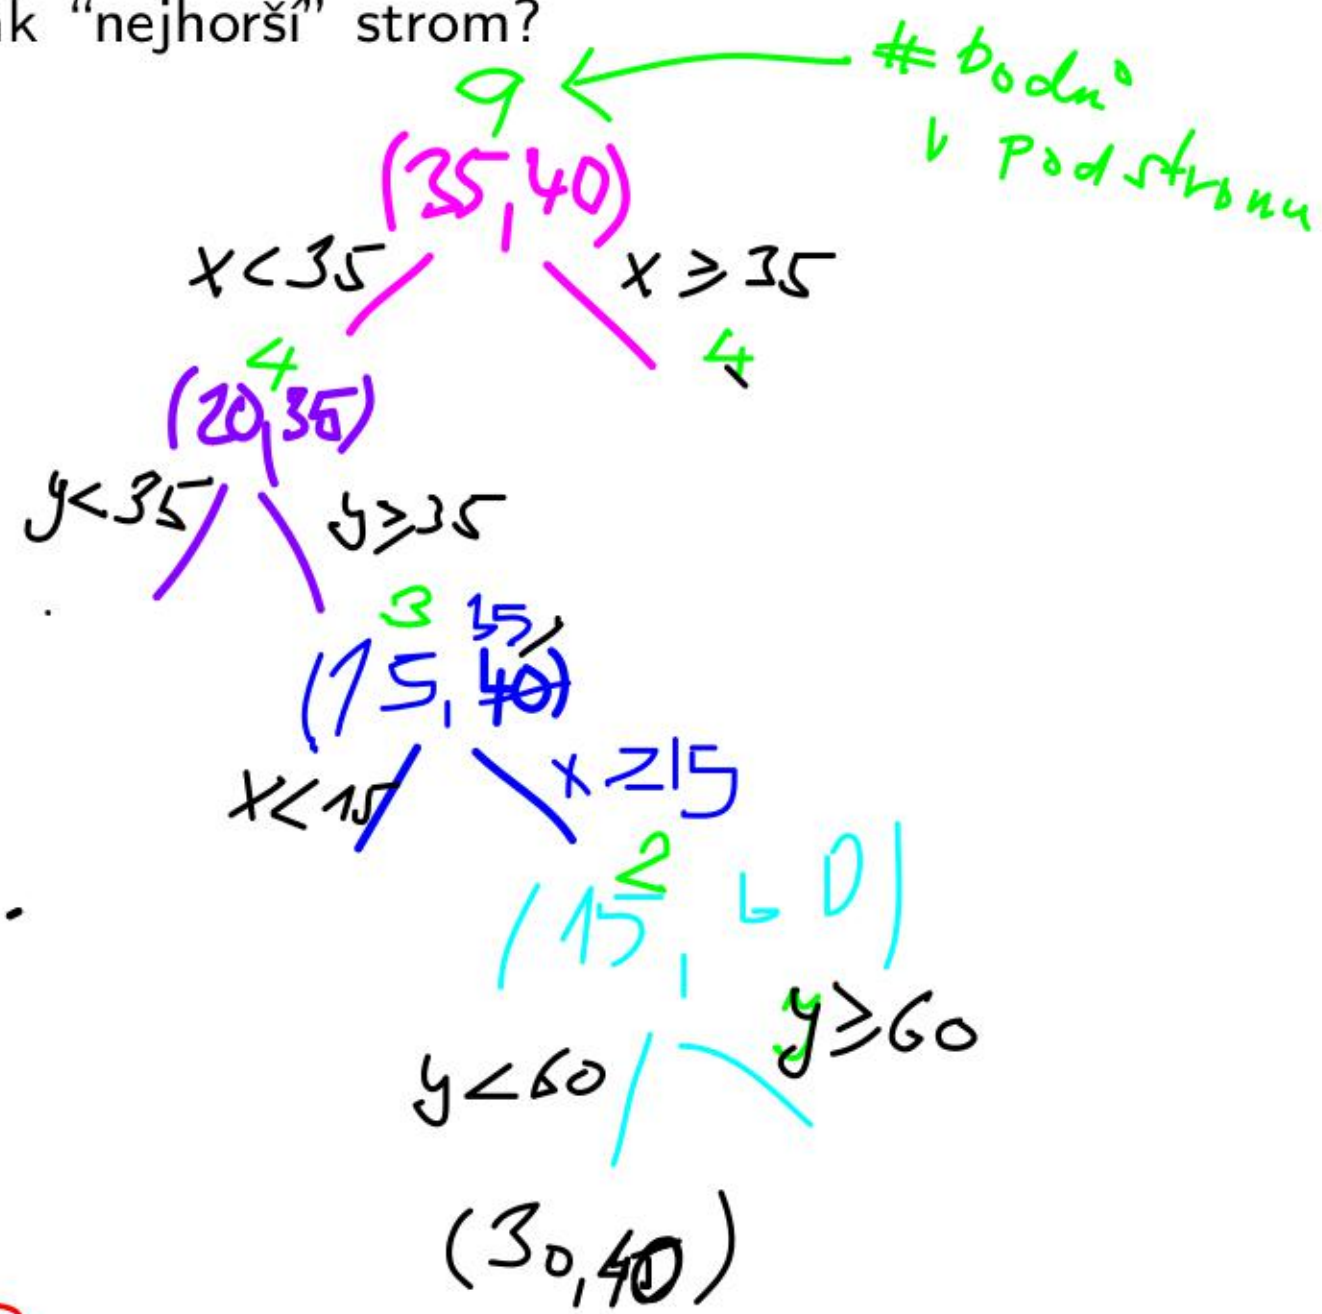 ak “nejhorší” strom?
9
# bodů
v podstromu
(35,40)
x<35
x ≥ 35
4
4
(20,35)
y<35
y≥35
3
35
(15, 40)
x<15
x ≥15
2
(15, 60)
y<60
y≥60
(30,40)